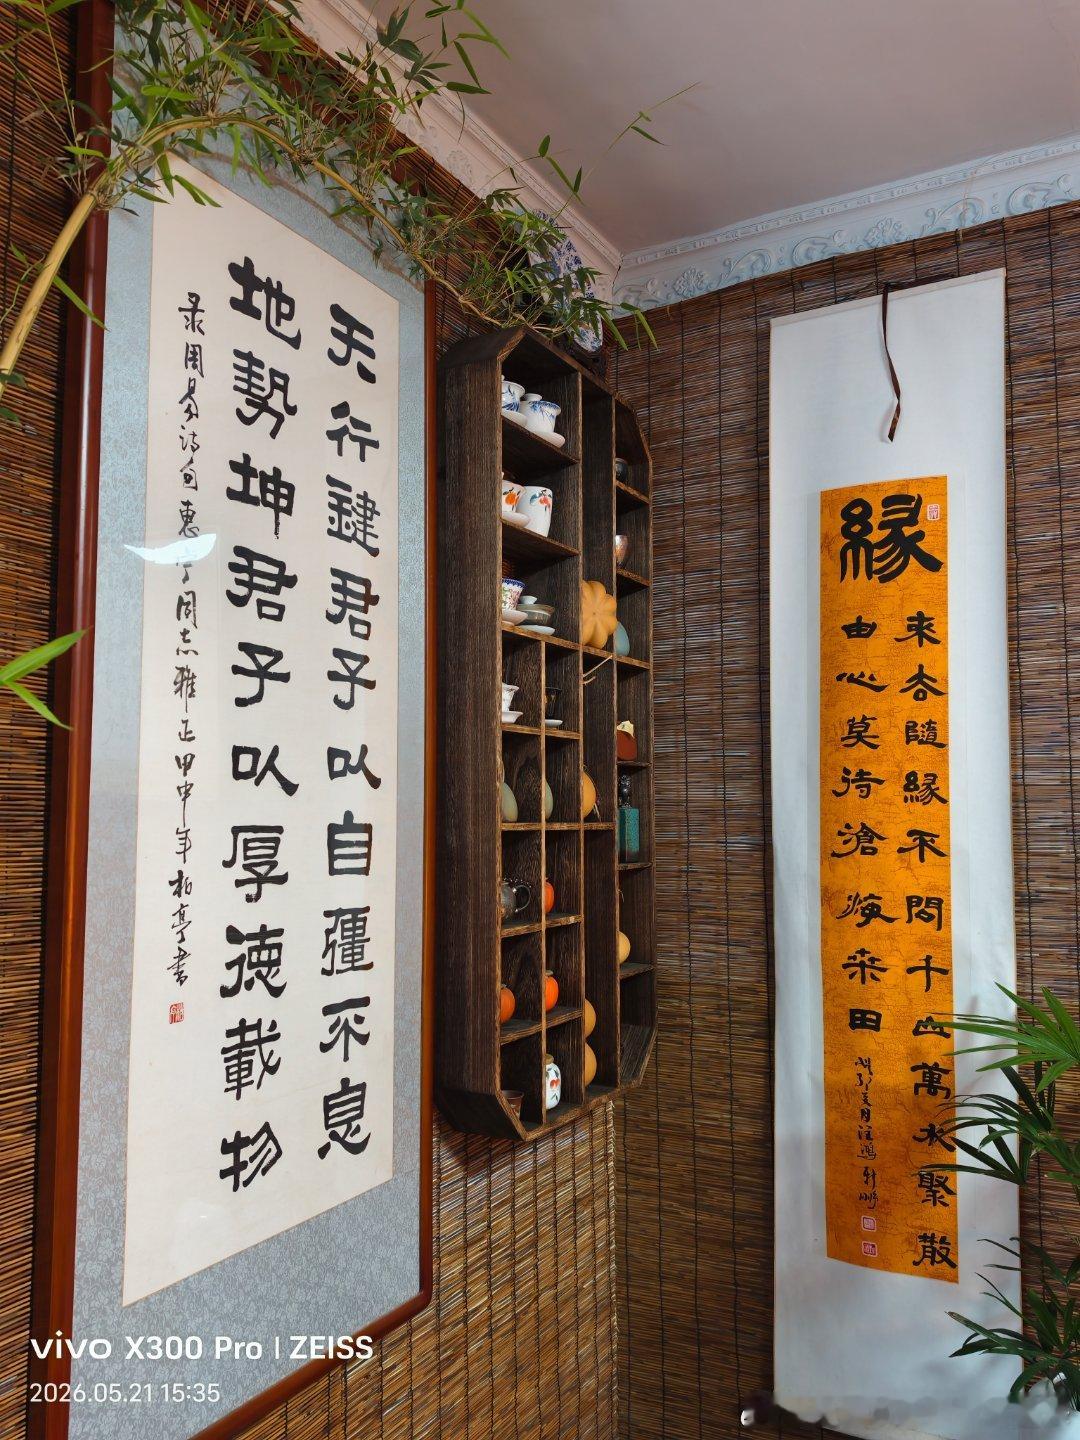 天行鍵君子以自彊不息
地勢坤君子以厚德載物
录周易詩句惠亭同志雅正甲申年柏亭書
緣
來去隨緣不問千山萬水聚散
由心莫待滄海桑田
vivo X300 Pro | ZEISS
2026.05.21 15:35